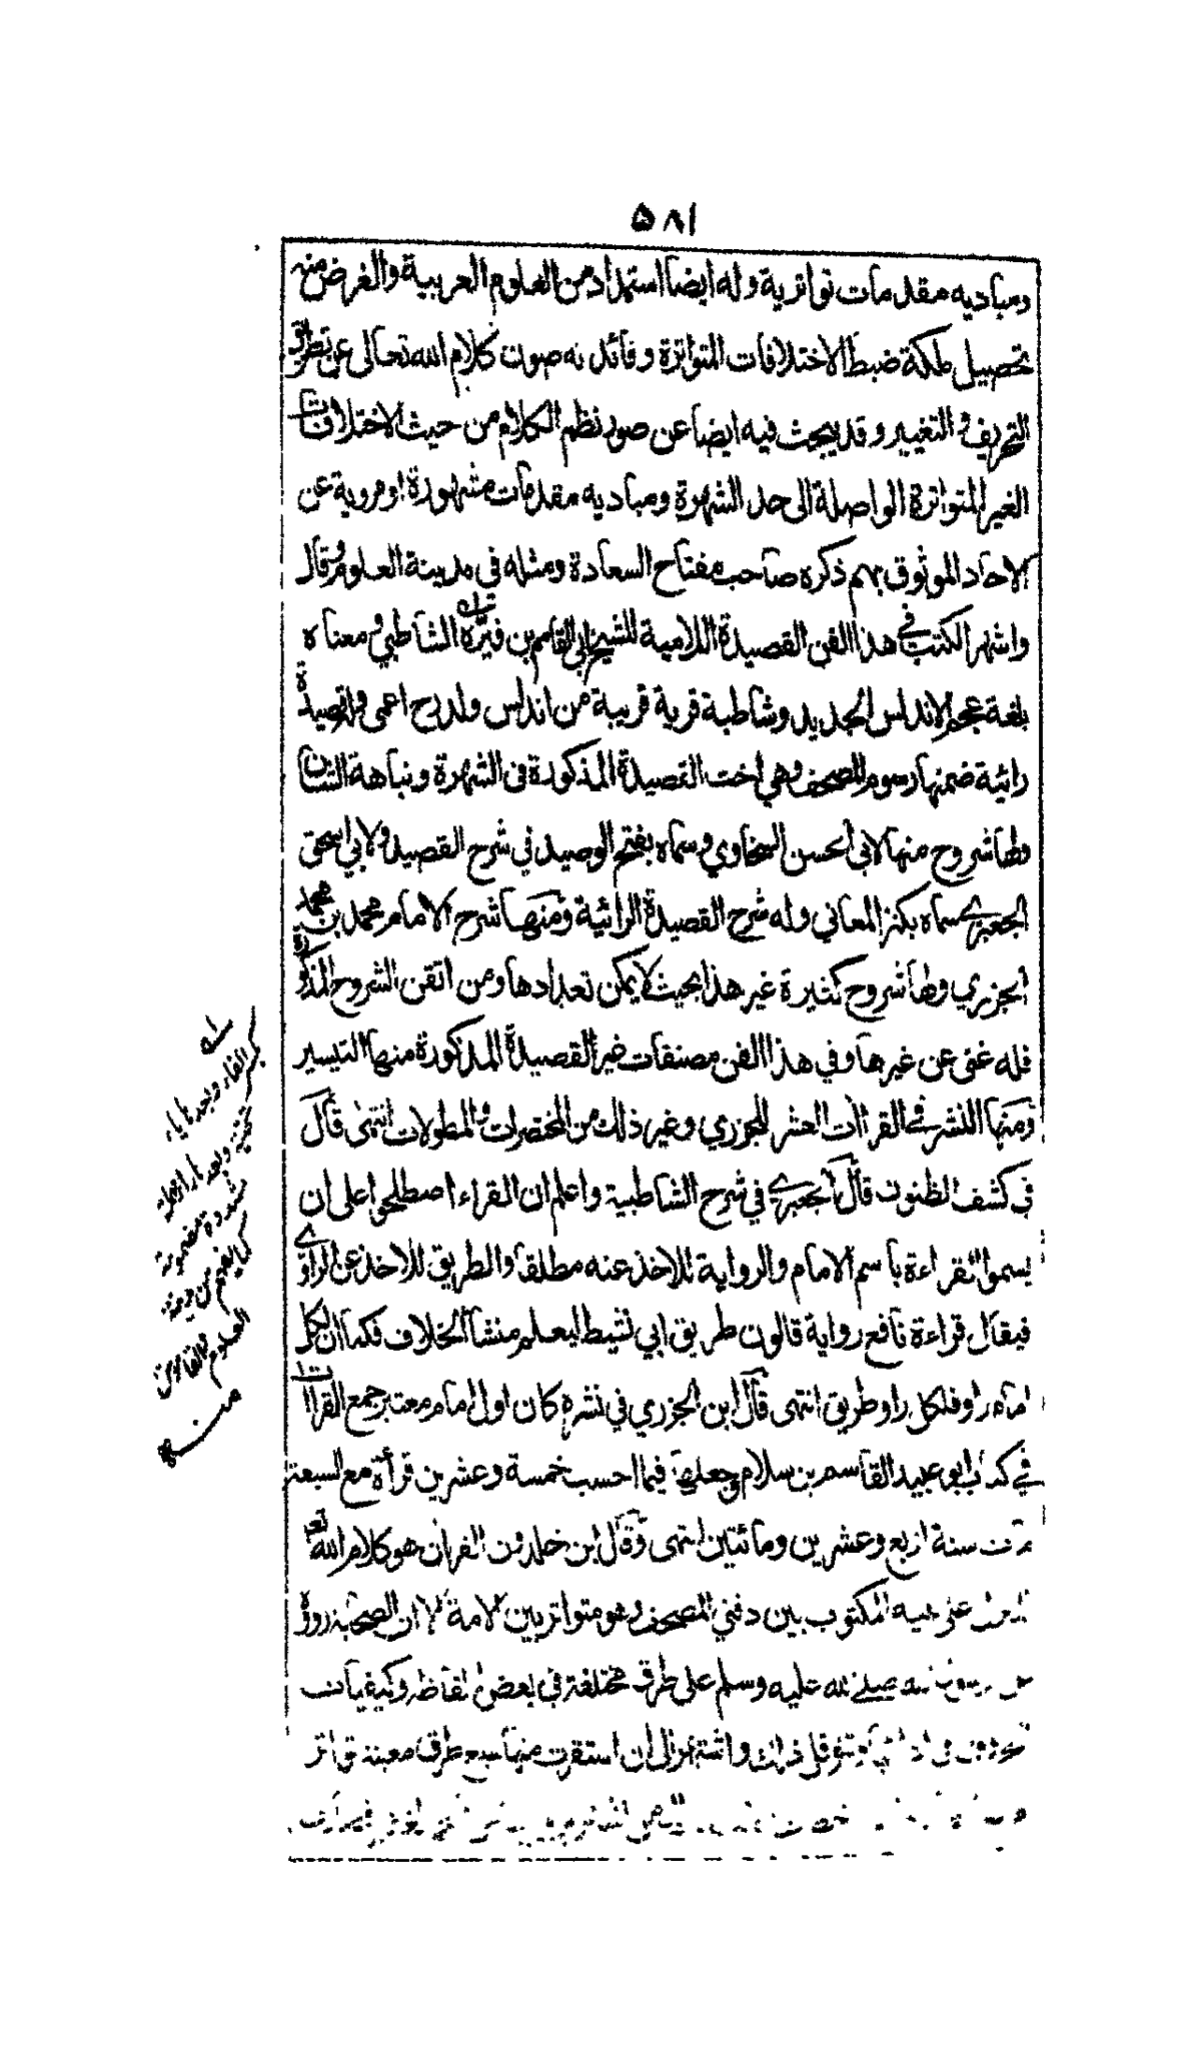 ٥٨١
ومباديه مقدمات تواترية وله ايضا استمداد من العلوم العربية والغرض منه
تحصيل ملكة ضبط الاختلافات المتواترة وفائدته صون كلام الله تعالى عن تطرق
التحريف والتغيير وقد يبحث فيه ايضا عن صور نظم الكلام من حيث الاختلافات
الغير المتواترة الواصلة الى حد الشهرة ومباديه مقدمات مشهورة او مروية عن
الاحاد الموثوق بهم ذكره صاحب مفتاح السعادة ومثله في مدينة العلوم وقال
واشهر الكتب في هذا الفن القصيدة اللامية للشيخ ابي القاسم بن فيرّه الشاطبي ومعناه
بلغة عجم الاندلس الحديد وشاطبة قرية قريبة من اندلس ولد رح اعمى وله قصيدة
رائية ضمنها رسوم المصحف وهي اخت القصيدة المذكورة في الشهرة ونباهة الشان
ولها شروح منها لابي الحسن السخاوي وسماه بفتح الوصيد في شرح القصيد ولابي اسحق
الجعبري سماه بكنز المعاني وله شرح القصيدة الرائية ومنها شرح الامام محمد بن محمد
الجزري ولها شروح كثيرة غير هذا بحيث لا يمكن تعدادها ومن اتقن الشروح المذكورة
فله غنى عن غيرها وفي هذا الفن مصنفات غير القصيدة المذكورة منها التيسير
ومنها النشر في القراات العشر للجزري وغير ذلك من المختصرات والمطولات انتهى قال
في كشف الظنون قال الجعبري في شرح الشاطبية واعلم ان القراء اصطلحوا على ان
يسموا القراءة باسم الامام والرواية للاخذ عنه مطلقا والطريق للاخذ عن الراوي
فيقال قراءة نافع رواية قالون طريق ابي نشيط ليعلم منشأ الخلاف فكما ان لكل
امام راو فلكل راو طريق انتهى قال ابن الجزري في نشره كان اول امام معتبر جمع القراات
في كتاب ابو عبيد القاسم بن سلام وجعلها فيما احسب خمسة وعشرين قرأة مع السبعة
مات سنة اربع وعشرين ومائتين انتهى وقال ابن خلدون القران هو كلام الله تعـ
المنزل على نبيه المكتوب بين دفتي المصحف وهو متواتر بين الامة الا ان الصحابة رووه
عن رسول الله صلى الله عليه وسلم على طرق مختلفة في بعض الفاظه وكيفيات
الحروف في ادائها وتنوقل ذلك واشتهر الى ان استقرت منها سبع طرق معينة تواتر
له
بكسر الفاء وبعدها ياء
تحتية وبعدها راء مهملة
مشددة مضمومة
كذا يفهم من مدينة
العلوم والقاموس
منه